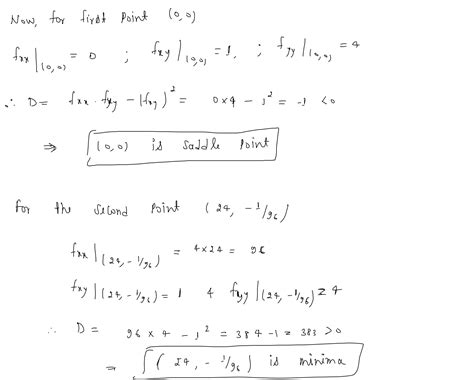 Now, for first point (0,0)
fxx|(0,0) = 0 ; fxy|(0,0) = 1, ; fyy|(0,0) = 4
∴ D = fxx · fyy - (fxy)² = 0×4 - 1² = -1 <0
⇒ (0,0) is saddle point
For the second point (24, -1/96)
fxx|(24, -1/96) = 4×24 = 96
fxy|(24, -1/96) = 1 & fyy|(24, -1/96) = 4
∴ D = 96 × 4 - 1² = 384 - 1 = 383 >0
⇒ (24, -1/96) is minima